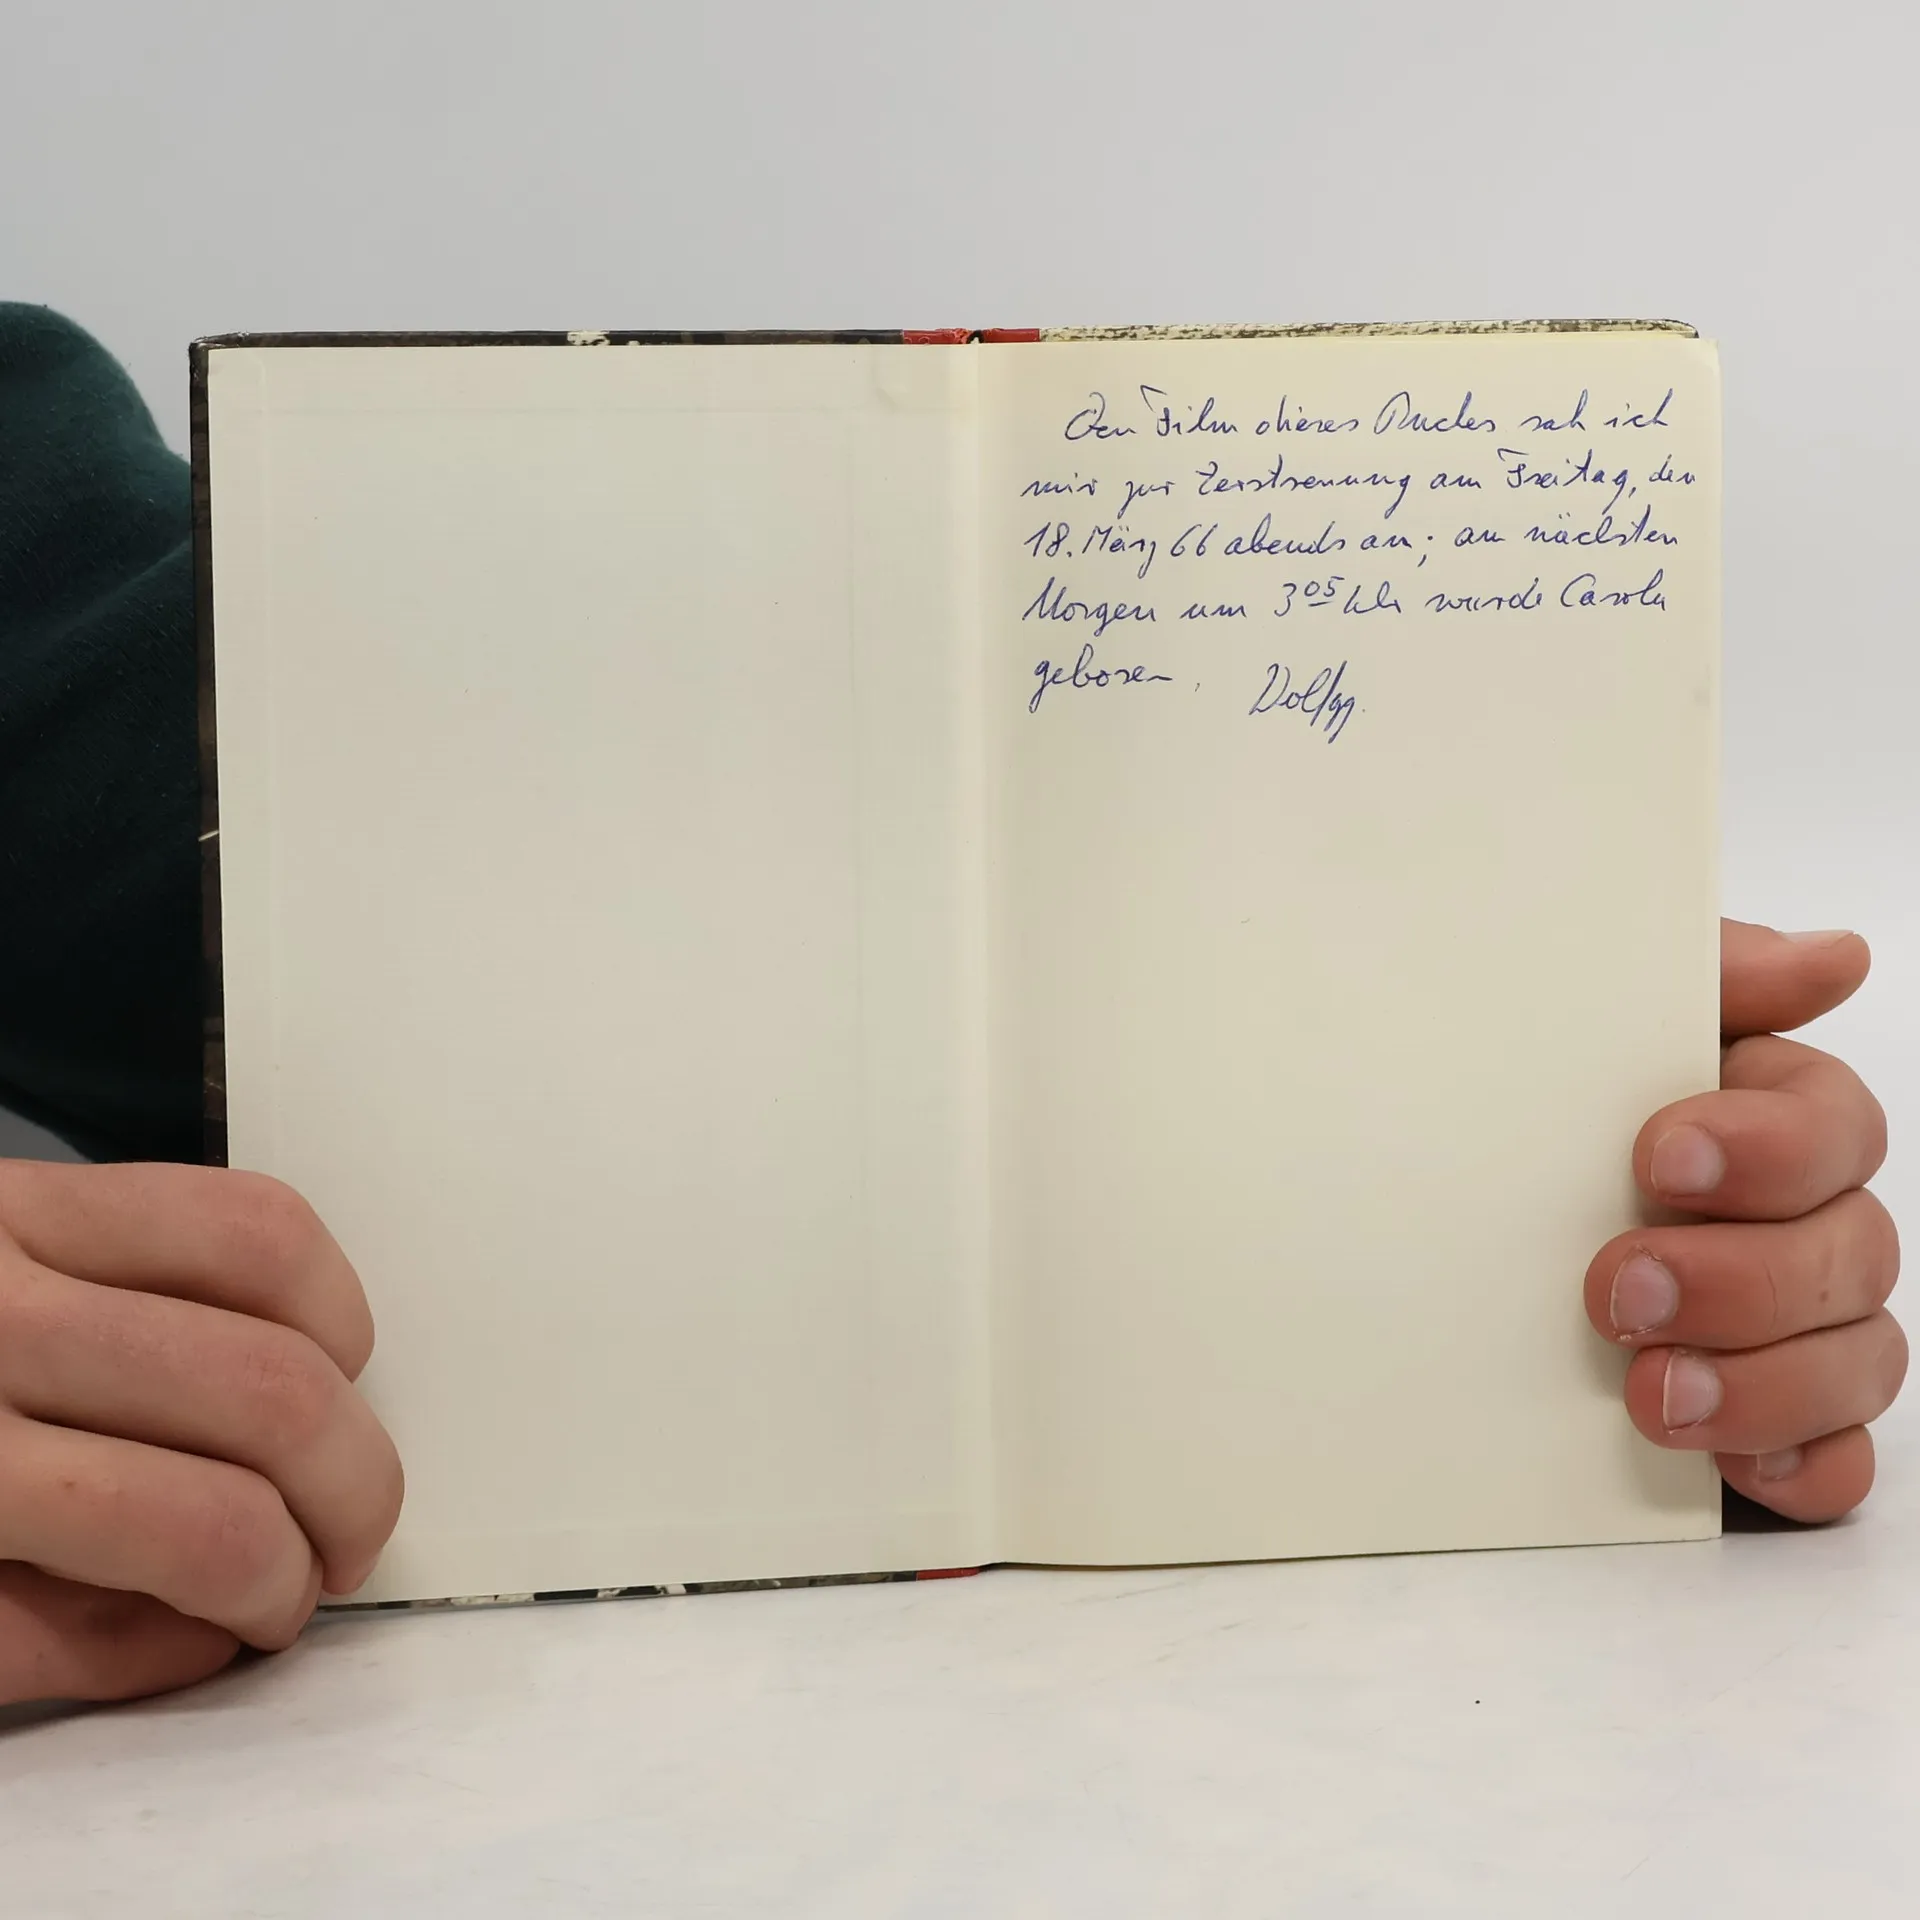 Den Film dieses Buches sah ich
mir zur Zerstreuung am Freitag, den
18. März 66 abends an; am nächsten
Morgen um 3⁰⁵ Uhr wurde Carola
geboren.